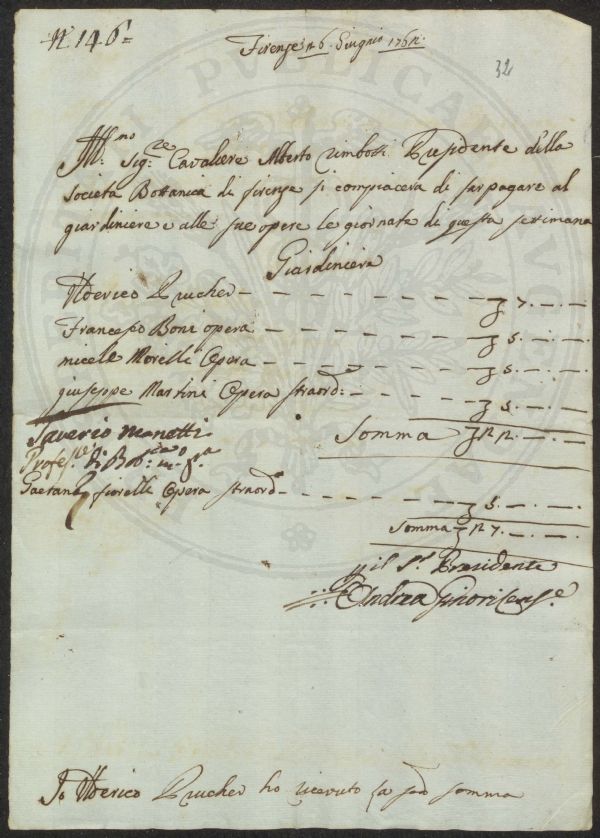 N. 146=
Firenze 26. Giugno 1762.
32
Ill:mo Sig:re Cavaliere Alberto Rimbotti Presidente della
Società Bottanica di firenze si compiacera di far pagare al
giardiniere e alle sue opere le giornate di questa settimana
Giardiniera
Ulderico Prucher — — — — — — — — ʒ 7. —. —
Francesco Boni opera — — — — — — — — ʒ 5. —. —
micele Morelli Opera — — — — — — — — ʒ 5. —. —
giuseppe Martini Opera straord: — — — — — ʒ 5. —. —
Saverio Manetti
Somma ʒ 22. —. —
Profes:re di Bot:ca
Gaetano fiorelli Opera straord: — — — — — ʒ 5. —. —
Somma ʒ 27. —. —
il S.r Presidente
Andrea Ginori Cens.e
Io Ulderico Prucher ho ricevuto la sud somma